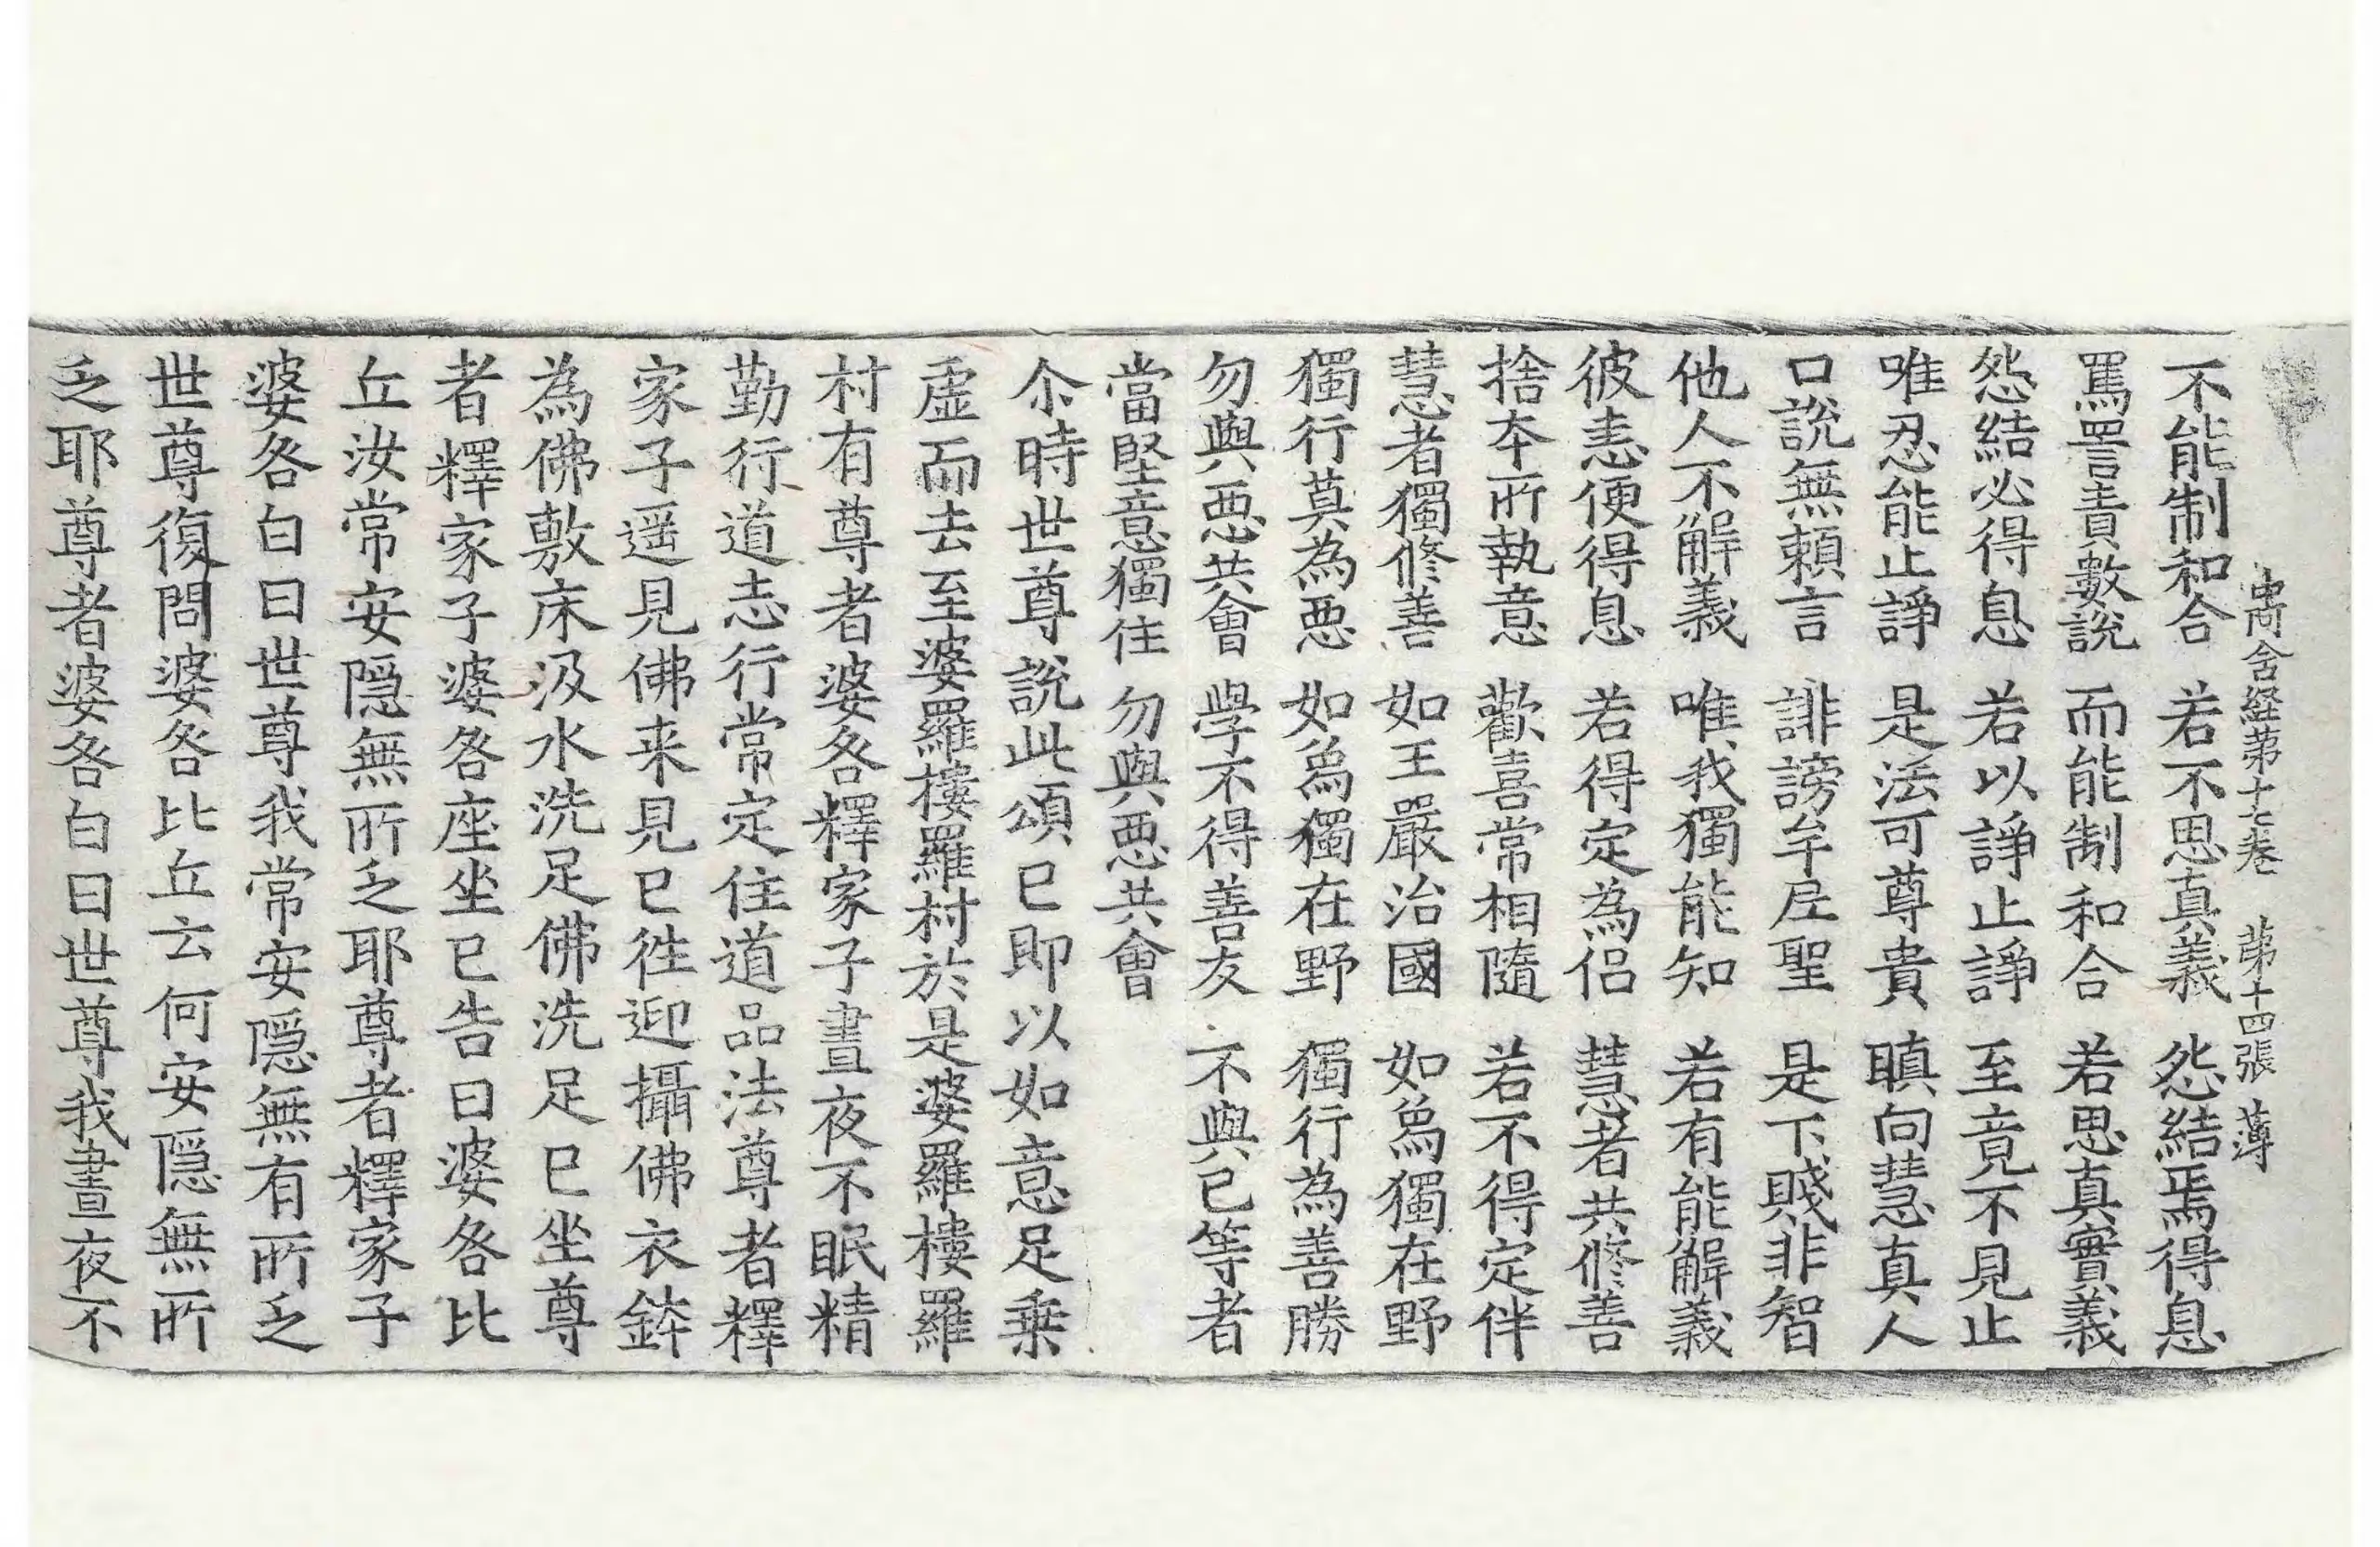 中阿含経第十七卷　第十四張　薄
不能制和合　若不思真義　怨結焉得息
罵詈責數說　而能制和合　若思真實義
怨結必得息　若以諍止諍　至竟不見止
唯忍能止諍　是法可尊貴　瞋向慧真人
口說無賴言　誹謗牟尼聖　是下賤非智
他人不解義　唯我獨能知　若有能解義
彼恚便得息　若得定為侣　慧者共修善
捨本所執意　歡喜常相隨　若不得定伴
慧者獨修善　如王嚴治國　如象獨在野
獨行莫為惡　如象獨在野　獨行為善勝
勿與惡共會　學不得善友　不與己等者
當堅意獨住　勿與惡共會
尒時世尊說此頌已即以如意足乗
虛而去至婆羅樓羅村於是婆羅樓羅
村有尊者婆咎釋家子晝夜不眠精
勤行道志行常定住道品法尊者釋
家子遥見佛来見已徃迎攝佛衣鉢
為佛敷床汲水洗足佛洗足已坐尊
者釋家子婆咎座坐已告曰婆咎比
丘汝常安隠無所乏耶尊者釋家子
婆咎白曰世尊我常安隠無有所乏
世尊復問婆咎比丘云何安隠無所
乏耶尊者婆咎白曰世尊我晝夜不